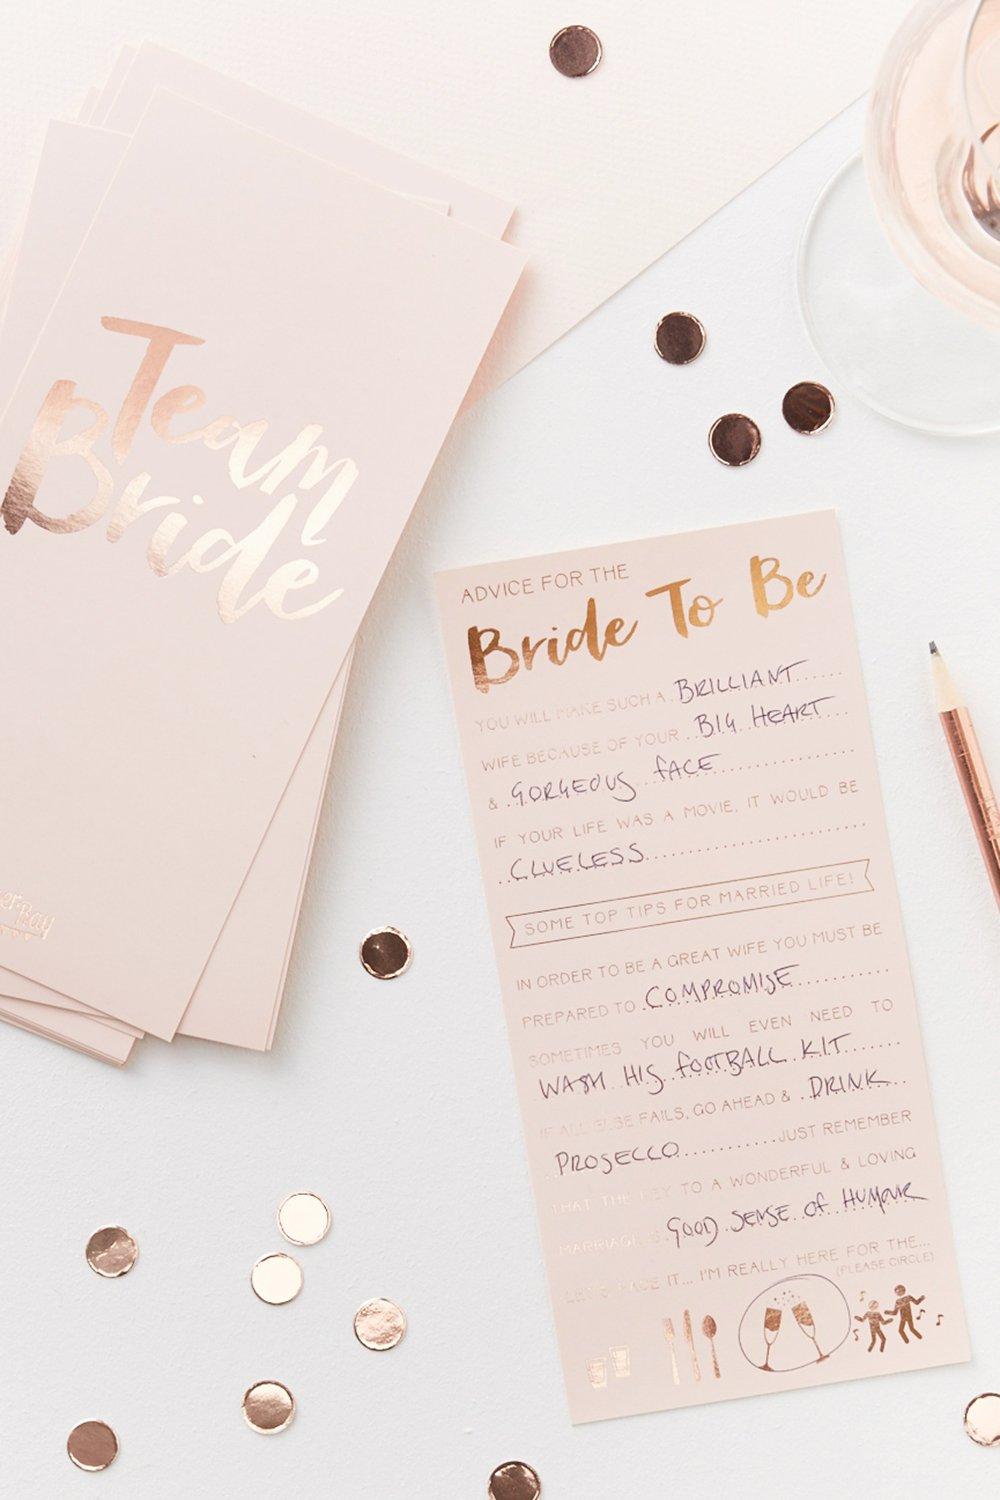 Team
Bride
ADVICE FOR THE
Bride To Be
YOU WILL MAKE SUCH A BRILLIANT
WIFE BECAUSE OF YOUR BIG HEART
& GORGEOUS FACE
IF YOUR LIFE WAS A MOVIE, IT WOULD BE
CLUELESS
SOME TOP TIPS FOR MARRIED LIFE!
IN ORDER TO BE A GREAT WIFE YOU MUST BE
PREPARED TO COMPROMISE
SOMETIMES YOU WILL EVEN NEED TO
WASH HIS FOOTBALL KIT
IF ALL ELSE FAILS, GO AHEAD & DRINK
PROSECCO JUST REMEMBER
THAT THE KEY TO A WONDERFUL & LOVING
MARRIAGE IS GOOD SENSE OF HUMOUR
LET'S FACE IT... I'M REALLY HERE FOR THE...
(PLEASE CIRCLE)